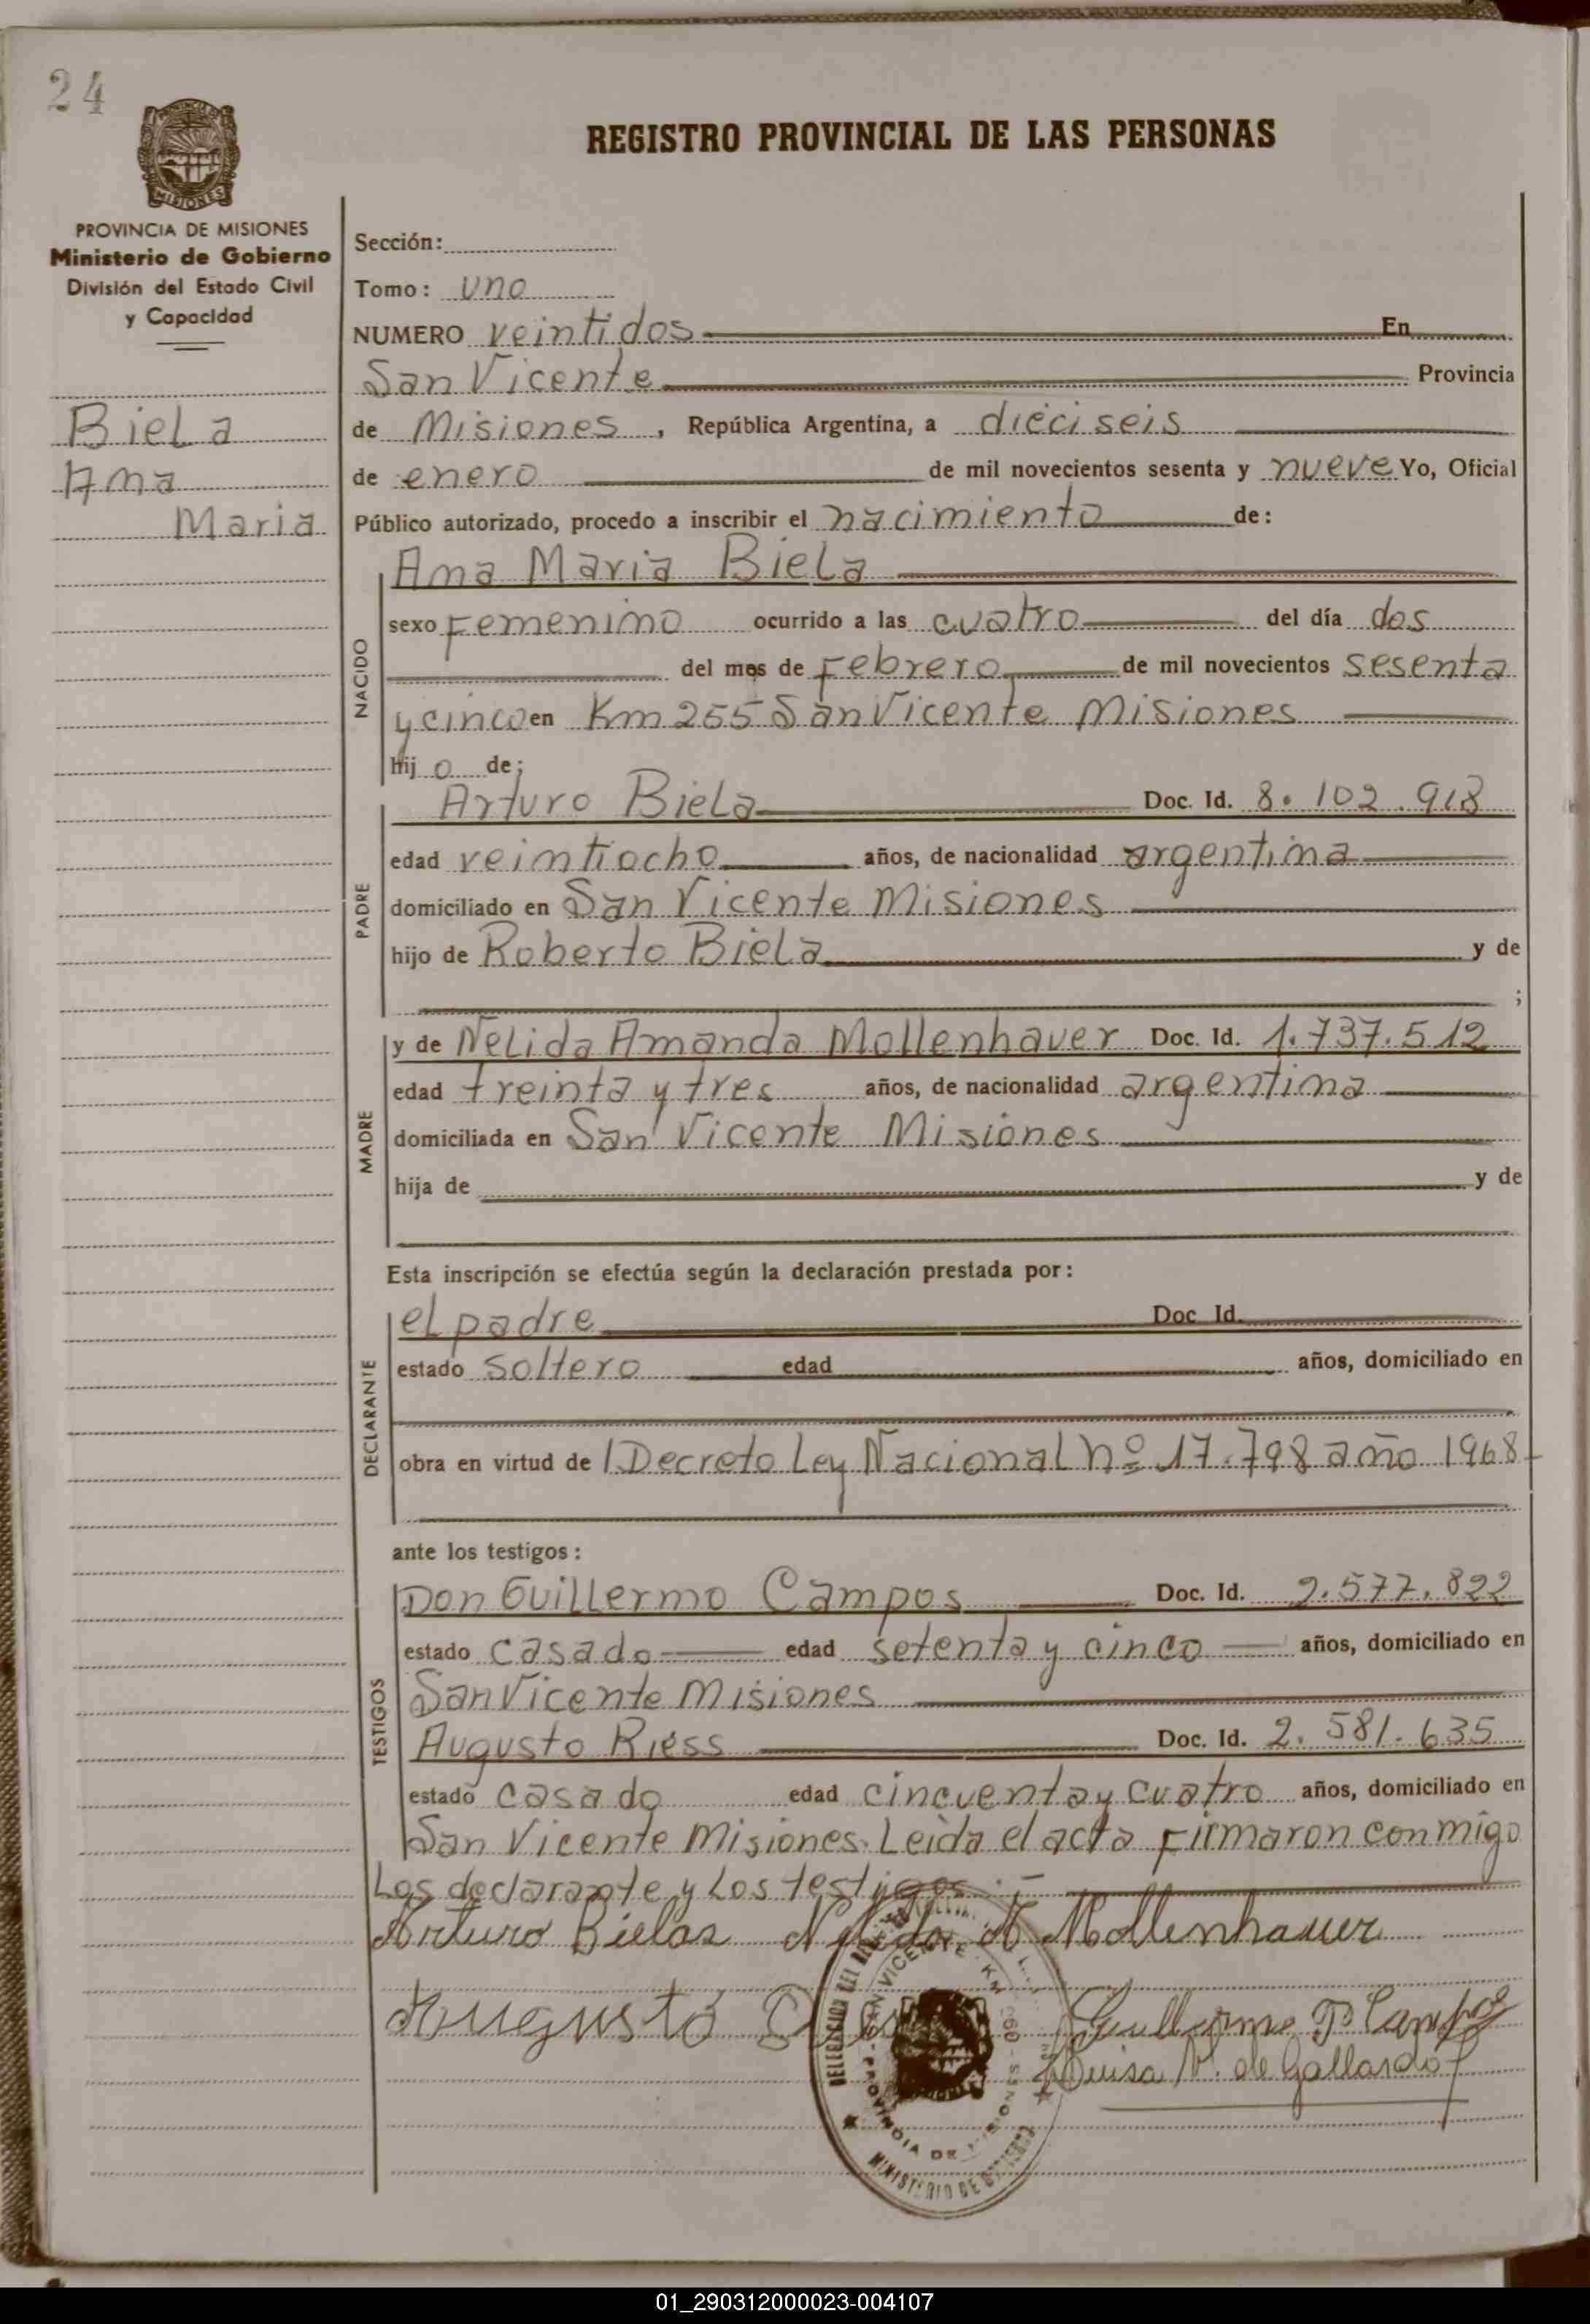 24
REGISTRO PROVINCIAL DE LAS PERSONAS
MISIONES
PROVINCIA DE MISIONES
Ministerio de Gobierno
División del Estado Civil
y Capacidad
Biela
Ana
Maria
Sección:
Tomo: uno
NUMERO veintidos En
San Vicente Provincia
de Misiones, República Argentina, a dieciseis
de enero de mil novecientos sesenta y nueve Yo, Oficial
Público autorizado, procedo a inscribir el nacimiento de:
NACIDO
Ana Maria Biela
sexo Femenino ocurrido a las cuatro del día dos
del mes de Febrero de mil novecientos sesenta
y cinco en Km 255 San Vicente Misiones
hij o de;
PADRE
Arturo Biela Doc. Id. 8.102.918
edad veintiocho años, de nacionalidad argentina
domiciliado en San Vicente Misiones
hijo de Roberto Biela y de
;
MADRE
y de Nelida Amanda Mollenhauer Doc. Id. 1.737.512
edad treinta y tres años, de nacionalidad argentina
domiciliada en San Vicente Misiones
hija de y de
Esta inscripción se efectúa según la declaración prestada por:
DECLARANTE
el padre Doc. Id.
estado soltero edad años, domiciliado en
obra en virtud de Decreto Ley Nacional nº 17.798 año 1968
ante los testigos:
TESTIGOS
Don Guillermo Campos Doc. Id. 2.577.822
estado casado edad setenta y cinco años, domiciliado en
San Vicente Misiones
Augusto Riess Doc. Id. 2.581.635
estado casado edad cincuenta y cuatro años, domiciliado en
San Vicente Misiones. Leida el acta firmaron conmigo
Los declarante y Los testigos.
Arturo Bielaz Nelida A Mollenhauer
Augusto
Guillermo P Campos
Luisa V. de Gallardo
SAN VICENTE KM 260 - MISIONES
PROVINCIA DE MISIONES
MINISTERIO DE GOBIERNO
01_290312000023-004107